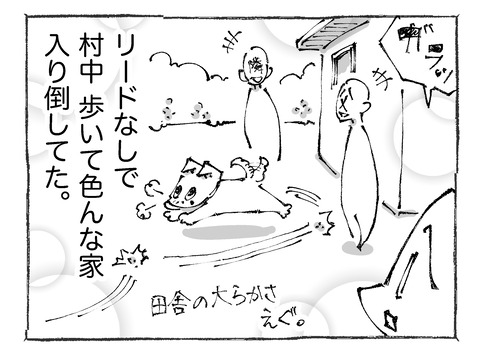 リードなしで
村中 歩いて色んな家
入り倒してた。
隣
田舎の大らかさ
えぐ。